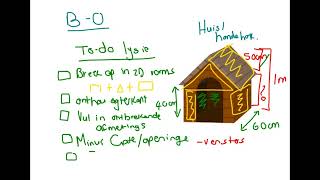 B-O
To-do lysie
Breek op in 2D vorms
□ + △ + ▭
onthou agterkant
Vul in ontbrekende
afmetings
Minus Gate/openinge
-vensters
Huis/
hondehok
50cm
1m
40cm
60cm